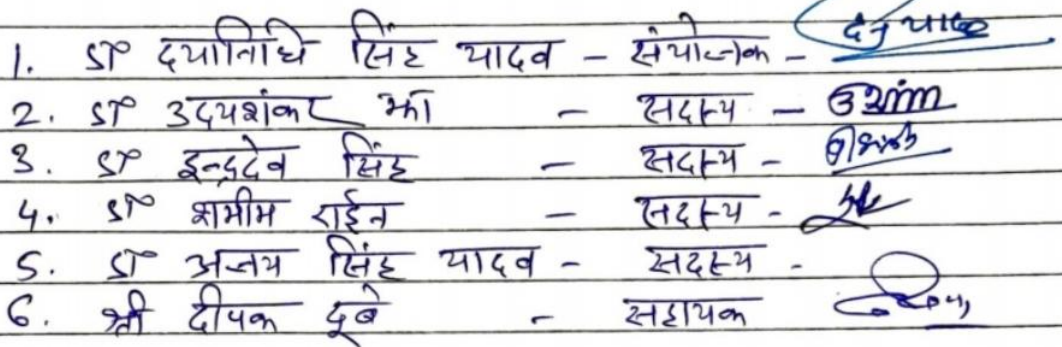 1. डॉ दयानिधि सिंह यादव - संयोजक -
2. डॉ उदयशंकर झा - सदस्य -
3. डॉ इन्द्रदेव सिंह - सदस्य -
4. डॉ शमीम राईन - सदस्य -
5. डॉ अजय सिंह यादव - सदस्य -
6. श्री दीपक दूबे - सहायक